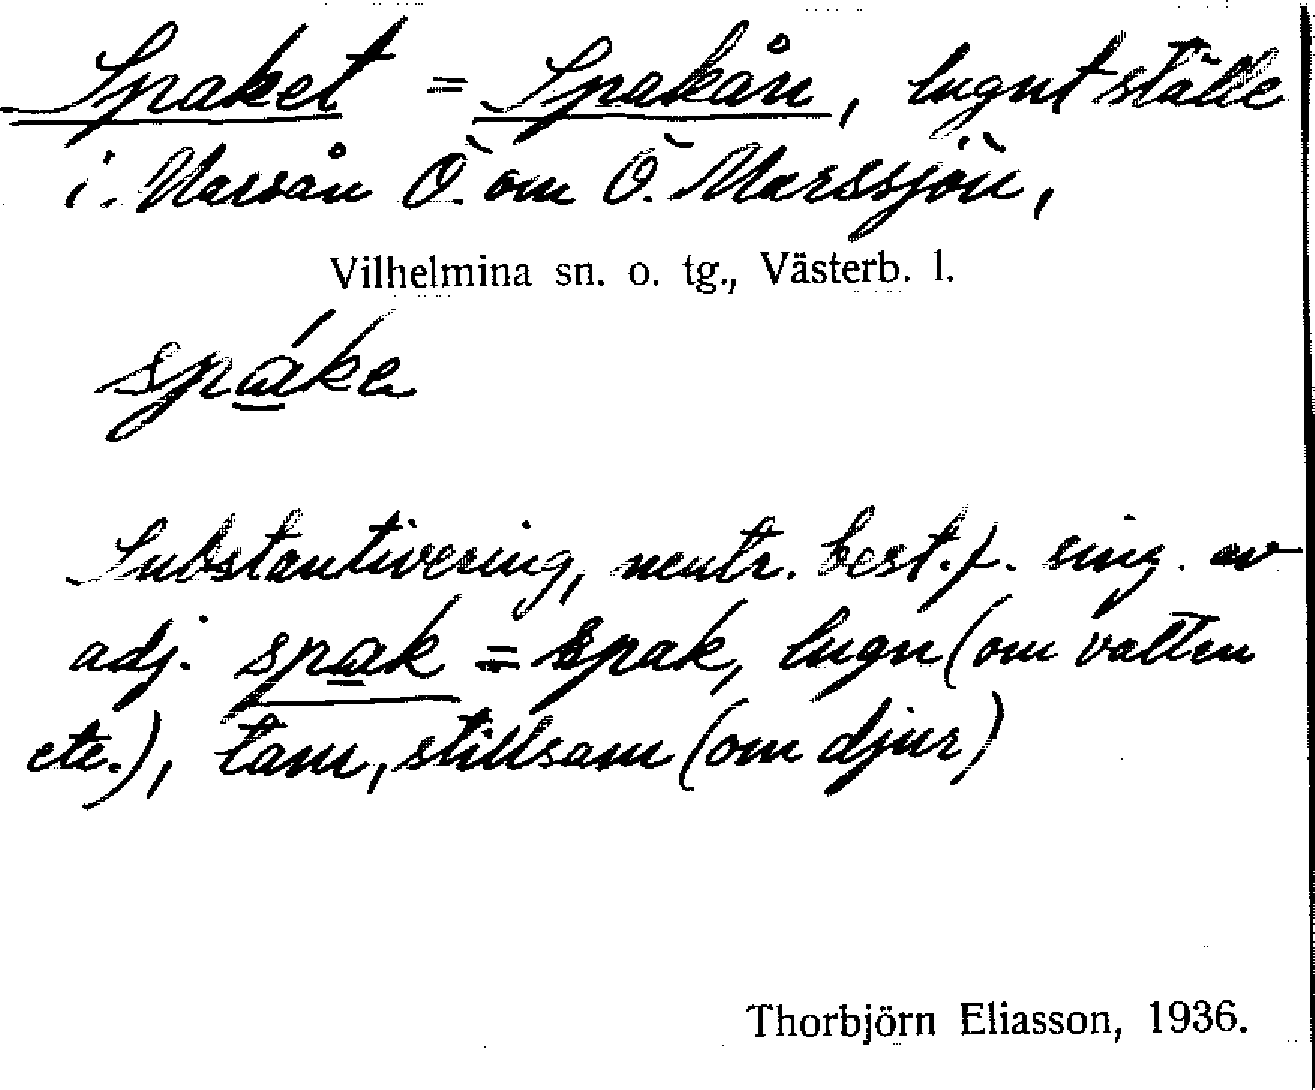 Spaket = Spakån, lugnt ställe
i. Marsån Ö. om Ö. Marssjön,
Vilhelmina sn. o. tg., Västerb. l.
spáke
Substantivering, neutr. best. f. sing. av
adj. spak = spak, lugn (om vatten
etc.), tam, stillsam (om djur)
Thorbjörn Eliasson, 1936.